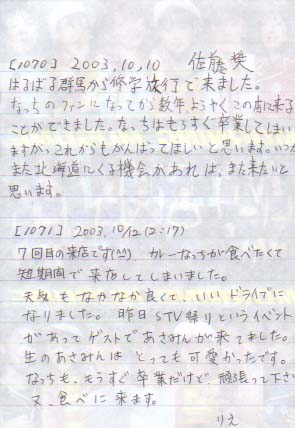 [1070] 2003.10.10 佐藤 奨
はるばる群馬から修学旅行で来ました。
なっちのファンになってから数年、ようやくこの店に来る
ことができました。なっちはもうすぐ卒業してしまい
ますが、これからもがんばってほしいと思います。いつか
また北海道にくる機会があれば、また来たいと
思います。
[1071] 2003.10/12(12:17)
7回目の来店です(^^) カレーなっちが食べたくて
短期間で来店してしまいました。
天気もなかなか良くて、いいドライブに
なりました。昨日STV祭りというイベント
があってゲストであさみんが来てました。
生のあさみんはとっても可愛かったです。
なっちも、もうすぐ卒業だけど、頑張って下さい
又、食べに来ます。
りえ